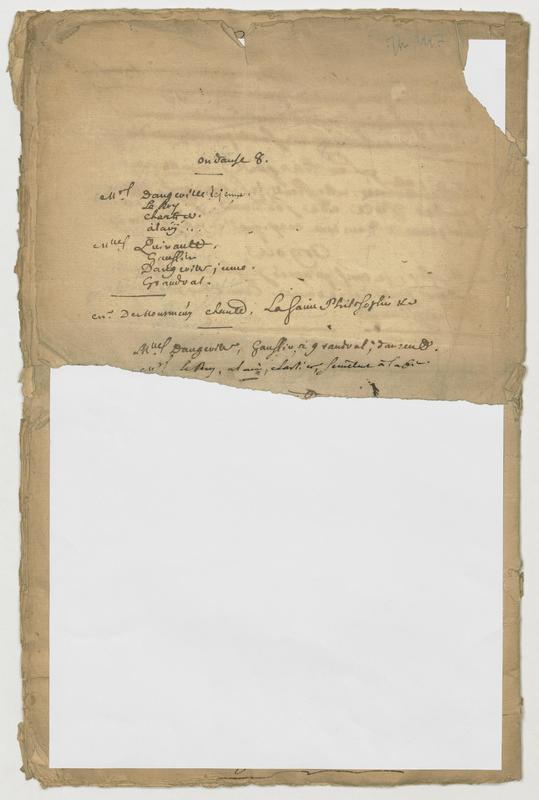 on danse 8.
Mrs. Dangeville le jeune.
Le Roy
chartier.
alain..
Mlles Quinault.
Gaussin
Dangeville jeune.
Grandval.
chante. La Saine Philosophie &c
Mlles Dangeville, Gaussin, grandval,
Le Roy, alain, chartier,